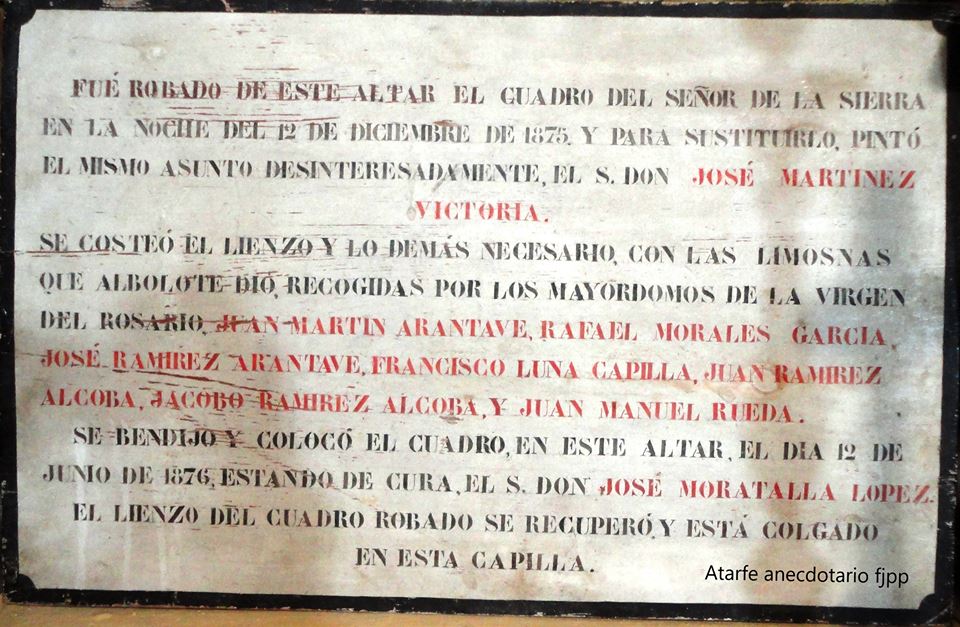 FUÉ ROBADO DE ESTE ALTAR EL CUADRO DEL SEÑOR DE LA SIERRA
EN LA NOCHE DEL 12 DE DICIEMBRE DE 1875. Y PARA SUSTITUIRLO, PINTÓ
EL MISMO ASUNTO DESINTERESADAMENTE, EL S. DON JOSÉ MARTINEZ
VICTORIA.
SE COSTEÓ EL LIENZO Y LO DEMÁS NECESARIO, CON LAS LIMOSNAS
QUE ALBOLOTE DIÓ, RECOGIDAS POR LOS MAYORDOMOS DE LA VIRGEN
DEL ROSARIO, JUAN MARTIN ARANTAVE, RAFAEL MORALES GARCIA,
JOSÉ RAMIREZ ARANTAVE, FRANCISCO LUNA CAPILLA, JUAN RAMIREZ
ALCOBA, JACOBO RAMIREZ ALCOBA, Y JUAN MANUEL RUEDA.
SE BENDIJO Y COLOCÓ EL CUADRO, EN ESTE ALTAR, EL DIA 12 DE
JUNIO DE 1876, ESTANDO DE CURA, EL S. DON JOSÉ MORATALLA LOPEZ.
EL LIENZO DEL CUADRO ROBADO SE RECUPERÓ, Y ESTÁ COLGADO
EN ESTA CAPILLA.
Atarfe anecdotario fjpp